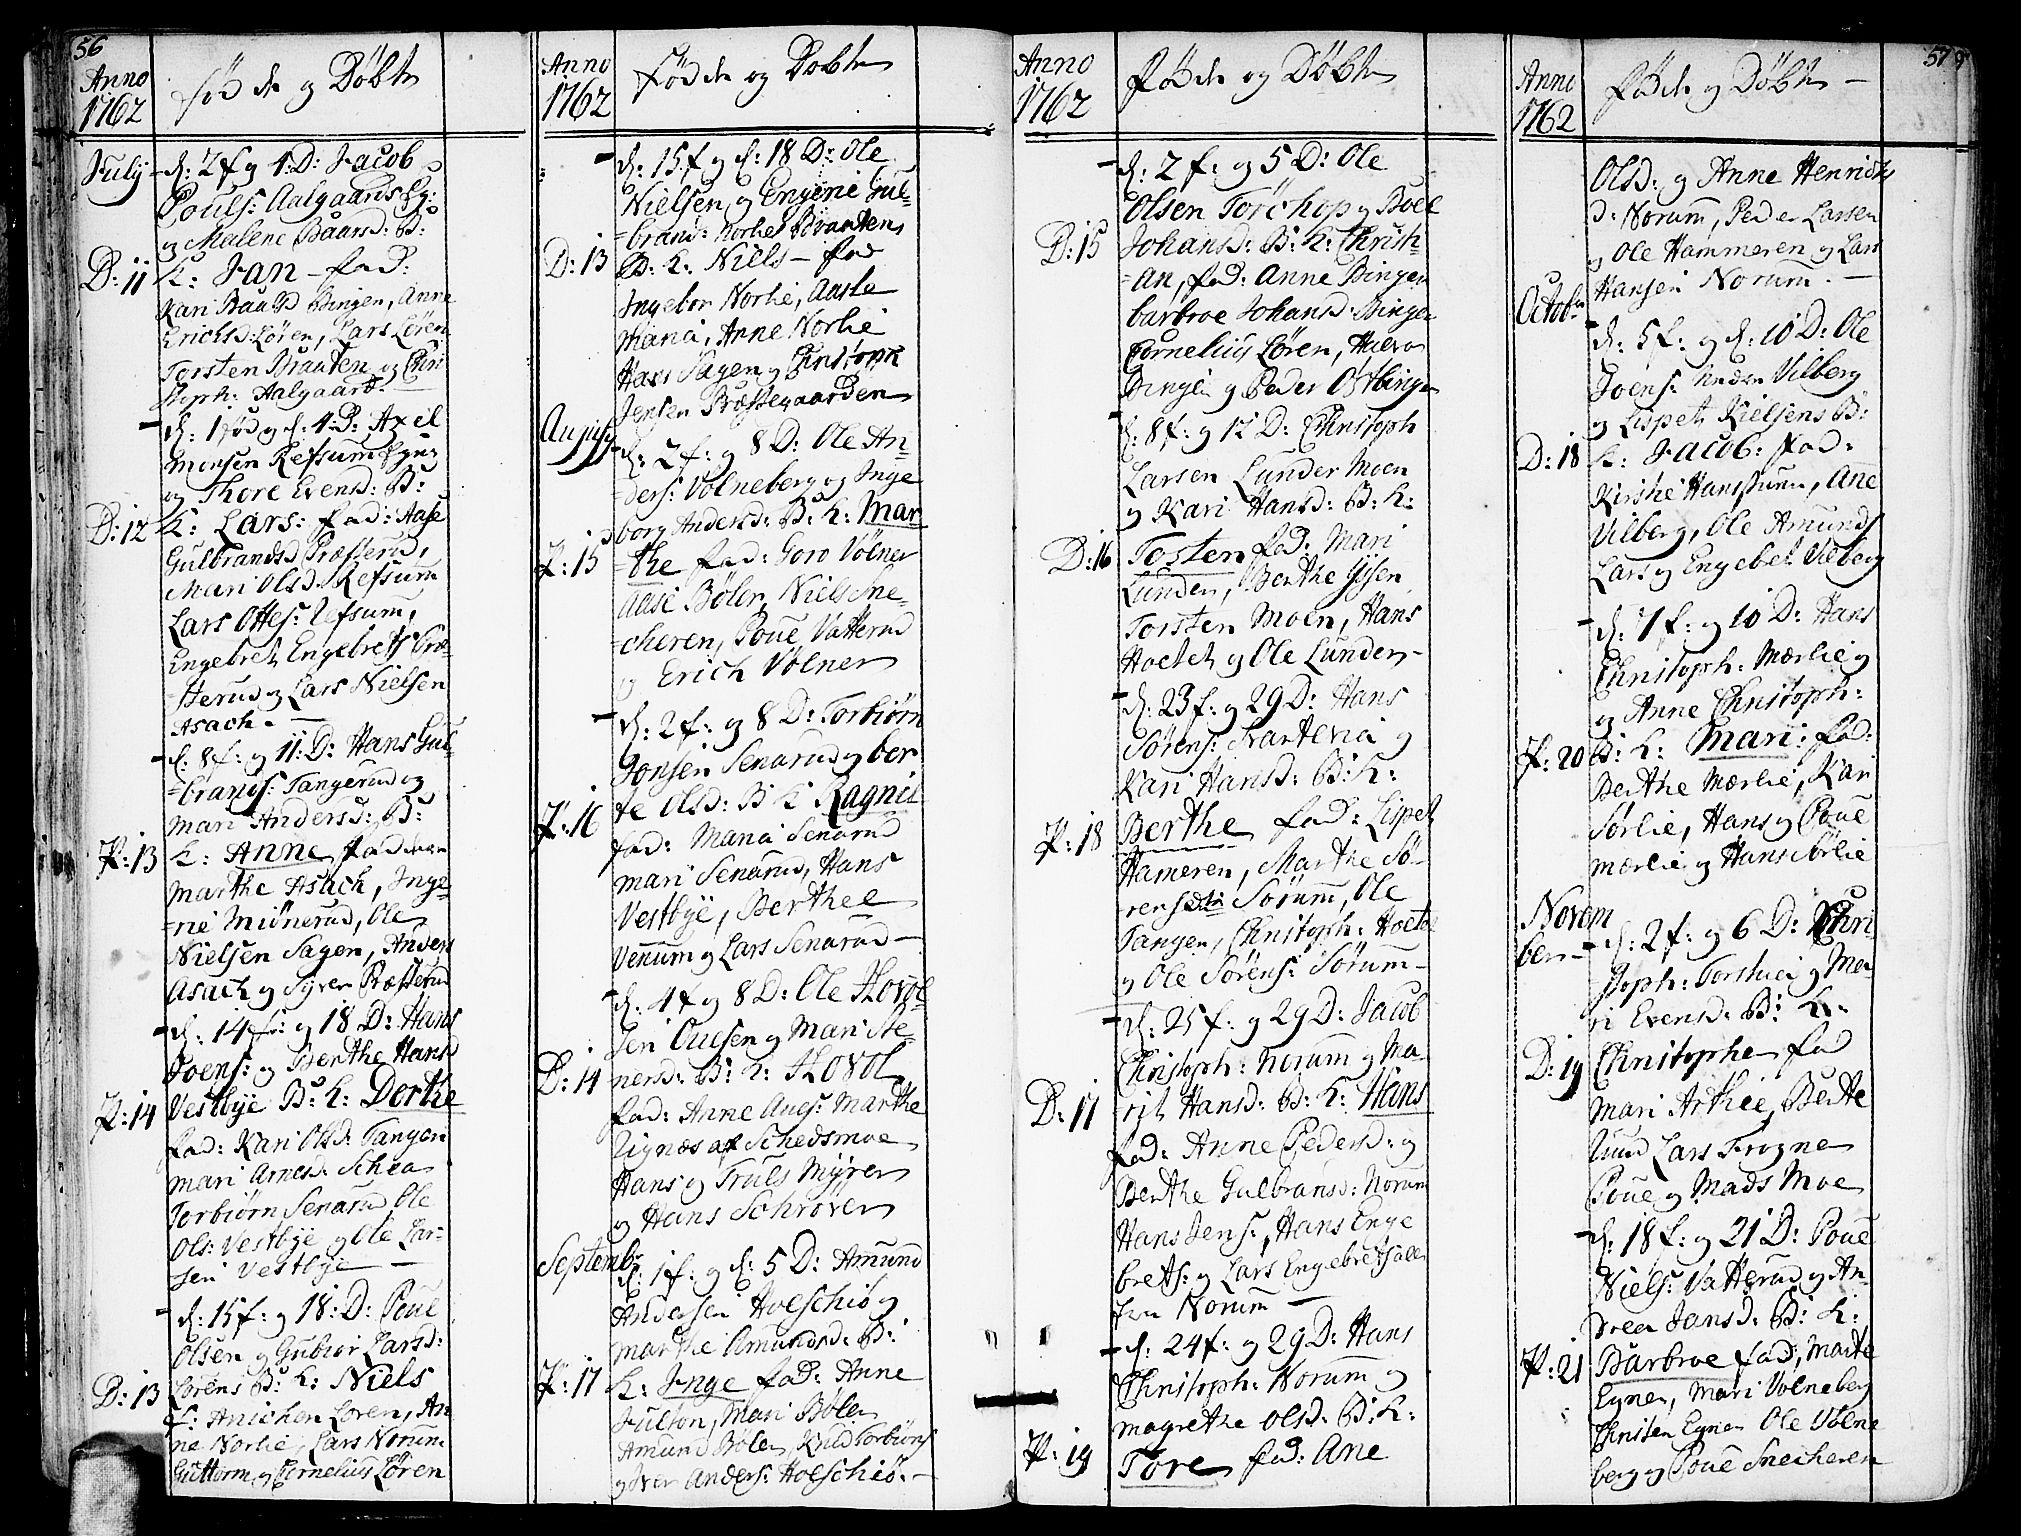 56
Anno
1762
fødde og Døbte
July
d: 2 f og 4. D: Jacob
Pouls: Aalgaards Eg:
og Malene Baarsd: B:
D: 11 K: Jan fad:
Kari Bingen, Anne
Erichsd: Løren, Lars Løren
Torsten Braaten og Chri
stoph: Aalgaard.
d: 1 fød og d: 4. D: Axel
Monsen Refsum
og Thore Evensd: B:
D: 12 K: Lars: fad: Aase
Gulbrandsd Præsterud,
Mari Olsd: Refsum
Lars Ottes: Refsum,
Engebret Engebrets Præ-
sterud og Lars Nielsen
Asach.
d: 8 f: og 11: D: Hans Gul-
brands: Tangerud og
Mari Andersd: B:
P: 13 K: Anne faddere
Marthe Asach, Inge-
rie Miønerud, Ole
Nielsen Sagen, Anders
Asach og Syver Præsterud
d: 14 f: og 18 D: Hans
Joens: og Berthe Hansd
P: 14 Vestbye B: K: Dorthe
fad: Kari Olsd: Tangen
Mari Arnesd: Schea
Torbiørn Senarud Ole
Ols: Vestbye og Ole Lar-
sen Vestbye
d: 15 f: og 18: D: Poul
Olsen og Gubiør Larsd:
D: 13 Lørens B: K: Niels
f: Anichen Løren, An
ne Norlie, Lars Norum
Guttorm og Cornelius Løren
Anno
1762
Fødde og Døbte
d: 15 f og d: 18 D: Ole
Nielsen og Engerie Gul-
brand: Norlie Braaten
D: 13 B: K: Niels fad
Ingebor Norlie, Aasta
Maria, Anne Norlie
Hans Sagen og Christoph
Jensen Præstegaarden
August
d: 2 f: og 8 D: Ole An-
ders: Volneberg og Inge
borg Andersd: B: K: Mar
P: 15 the fad: Goro Vølner
Aase Bøler, Niels Sne-
cheren, Poue Vatterud
og Erich Vølner
d: 2 f: og 8 D: Torbiørn
Jonsen Senarud og Ber
P: 16 te Olsd: B K Ragnil
fad: Maria Senarud
Mari Senarud, Hans
Vestbye, Berthee
Venum og Lars Senarud
d: 4 f og 8 D: Ole Hovol
sen Ouesen og Mari Ste-
D: 14 nersd: B: K: Hovol
fad: Anne Aues: Marthe
Lignæs af Schedsmoe
Hans og Truls Myrer
og Hans Schrøver
Septemb:
d: 1 f: og d: 5 D: Amund
Andersen Hoelschiø og
Marthe Amundsd: B:
P: 17 K: Inge fad: Anne
Julton, Mari Bøler
Amund Bøler, Knud Torbiøns
og Iver Anders: Hoelschiø.
Anno
1762
Fødde og Døbte
d: 2 f: og 5 D: Ole
Olsen Torchop og Boel
D: 15 Johansd: B: K: Christi-
an, fad: Anne Bingen
Barbroe Johansd: Bingen
Cornelius Løren, Halvor
Bingen og Peder Østbingen
d: 8 f: og 12 D: Christoph
Larsen Lunder Moen
og Kari Hansd: B: K:
D: 16 Torsten fad: Mari
Lunder, Berthe Ijsen
Torsten Moen, Hans
Hoelet og Ole Lunder
d: 23 f: og 29 D: Hans
Sørens: Svartevia og
Kari Hansd: B: K:
P: 18 Berthe fad: Lispet
Hameren, Marthe Sø-
rensdtr Sørum, Ole
Tangen, Christoph: Hoelet
og Ole Sørens: Sørum
d: 25 f: og 29 D: Jacob
Christoph: Norum og Ma-
D: 17 rit Hansd: B: K: Hans
fad: Anne Pedersd: og
Berthe Gulbransd: Norum
Hans Jens:, Hans Enge
brets: og Lars Engebrets alle
fra Norum
d: 24 f: og 29 D: Hans
Christoph: Norum og
Magrethe Olsd: B: K:
P: 19 Tore fad: Ane
57
Anno
1762
Fødde og Døbte
Olsd: og Anne Henrichs
d: Norum, Peder Larsen
og Ole Hammeren og Lars
Hansen Norum.
Octobr
d: 5 f: og d: 10 D: Ole
Joens: Vilberg
og Lispet Nielsens B:
D: 18 K: Jacob: fad:
Kirstie Hansstuen, Ane
Vilberg, Ole Amunds
Lars og Engebet Vilberg
d: 7 f: og 10 D: Hans
Christoph: Mærlie og
og Anne Christoph:
P: 20 B: K: Mari: fad:
Berthe Mærlie, Kari
Sørlie, Hans og Poue
Mærlie og Hans Sørlie
Novem
ber
d: 2 f: og 6 D: Chri-
stoph: Torstuen og Ma-
ri Evensd: B: K:
D: 19 Christophe fad
Mari Arthee, Berte
Lund Lars Frogne
Poue og Mads Moe
d: 18 f: og 21 D: Poue
Niels: Vatterud og An-
drea Jansd: B: K:
P: 21 Barbroe fad, Marte
Egner, Mari Volneberg
Christen Egner Ole Vølne
berg og Poue Snecheren